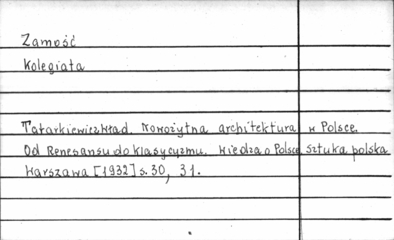 Zamość
Kolegiata
Tatarkiewicz Wład. Nowożytna architektura w Polsce.
Od Renesansu do klasycyzmu. Wiedza o Polsce sztuka polska
Warszawa [1932] s. 30, 31.